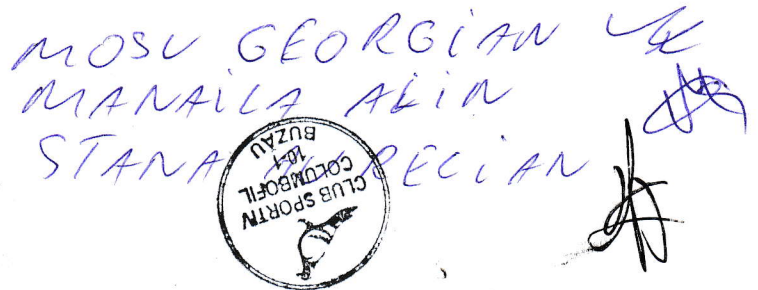 MOSU GEORGIAN
MANAILA ALIN
STANA
CLUB SPORTIV
COLUMBOFIL
10-1
BUZĂU